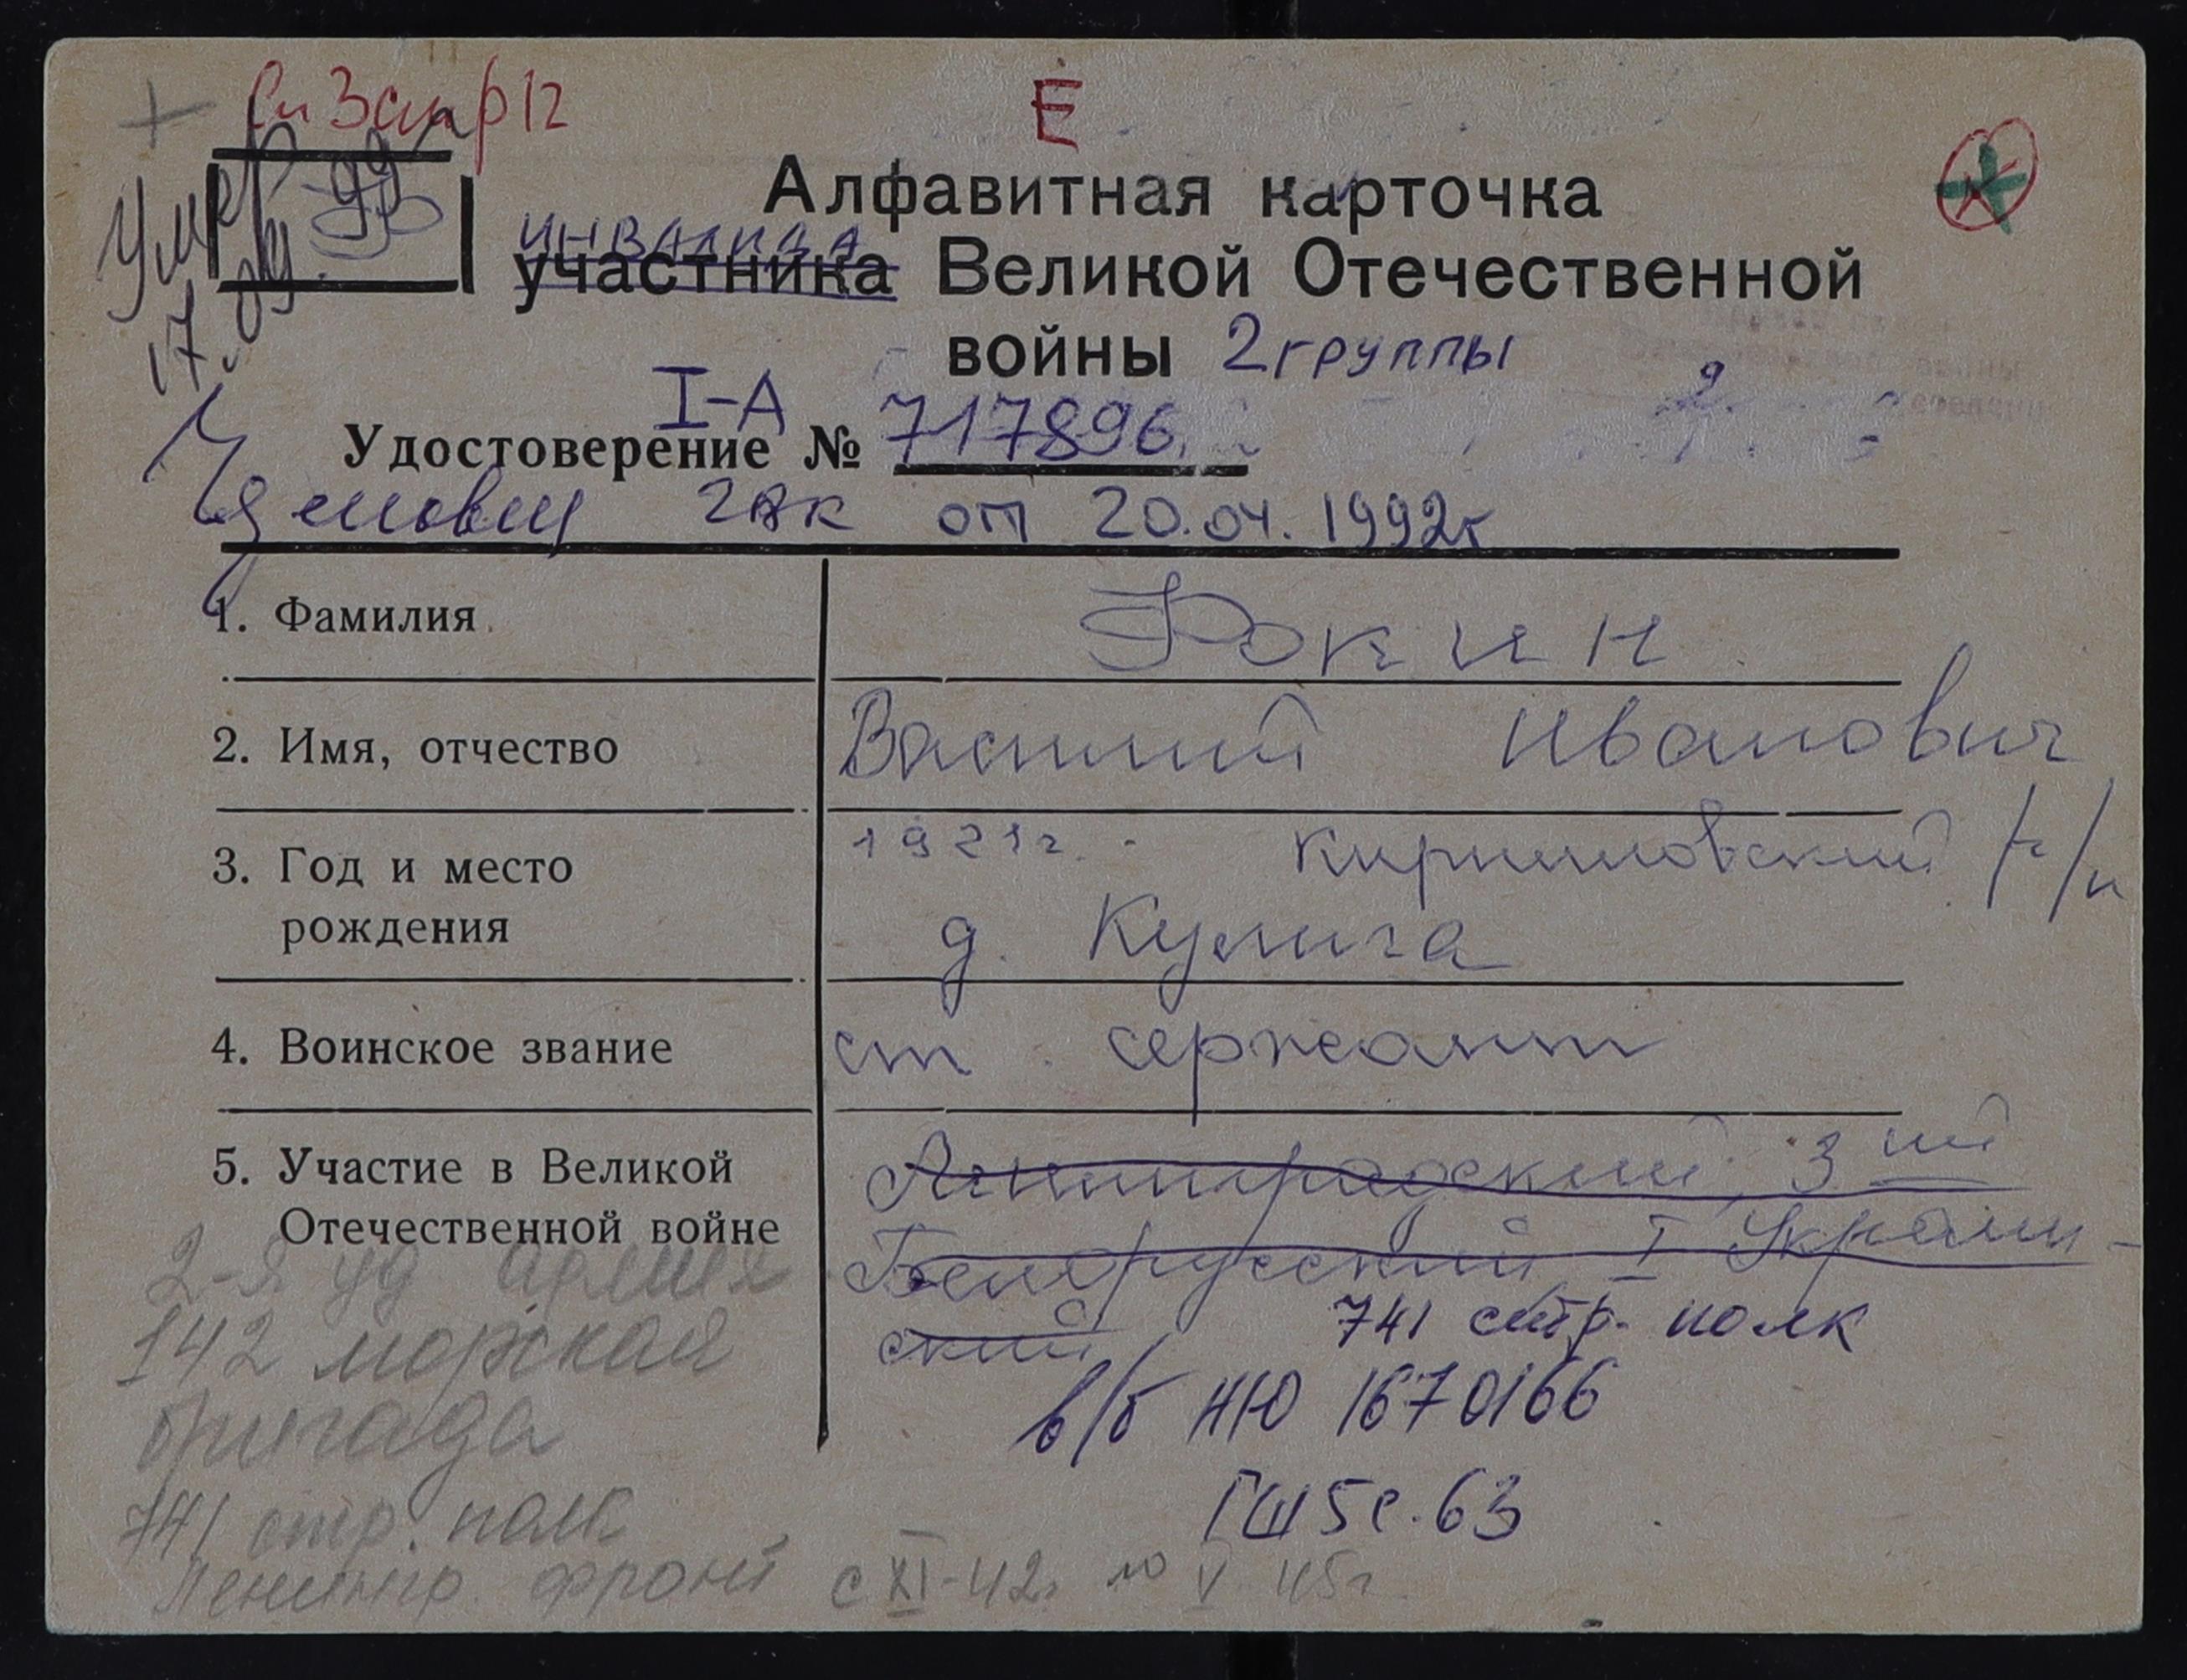 Е
Умер
17.09.99
Ф
Алфавитная карточка
инвалида
участника Великой Отечественной
войны 2 группы
I-А
Удостоверение № 717896.
от 20.04.1992г
1. Фамилия
Фокин
2. Имя, отчество
Василий Иванович
3. Год и место рождения
1921г. Кирилловский р/н
д. Кулига
4. Воинское звание
ст. сержант
5. Участие в Великой
Отечественной войне
Ленинградский, 3ий
Белорусский I Украин-
ский
741 стр. полк
в/б НЮ 1670166
ГШ 5 с. 63
2-я уд армия
142 морская
бригада
741 стр. полк
Ленингр. фронт с XI-42г по V 45г